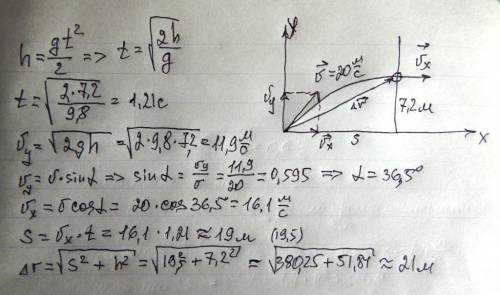 h = gt²/2 => t = √(2h/g)
t = √(2·7,2/9,8) = 1,21с
υy = √(2gh) = √(2·9,8·7,2) = 11,9 м/с
υy = υ·sinα => sinα = υy/υ = 11,9/20 = 0,595 => α = 36,5°
υx = υcosα = 20·cos36,5° = 16,1 м/с
S = υx·t = 16,1·1,21 ≈ 19 м (19,5)
Δr = √(S² + h²) = √(19,5² + 7,2²) ≈ √(380,25 + 51,84) ≈ 21 м
y
υ⃗ = 20 м/с
υ⃗x
υy
Δr⃗
7,2м
υ⃗x
S
x